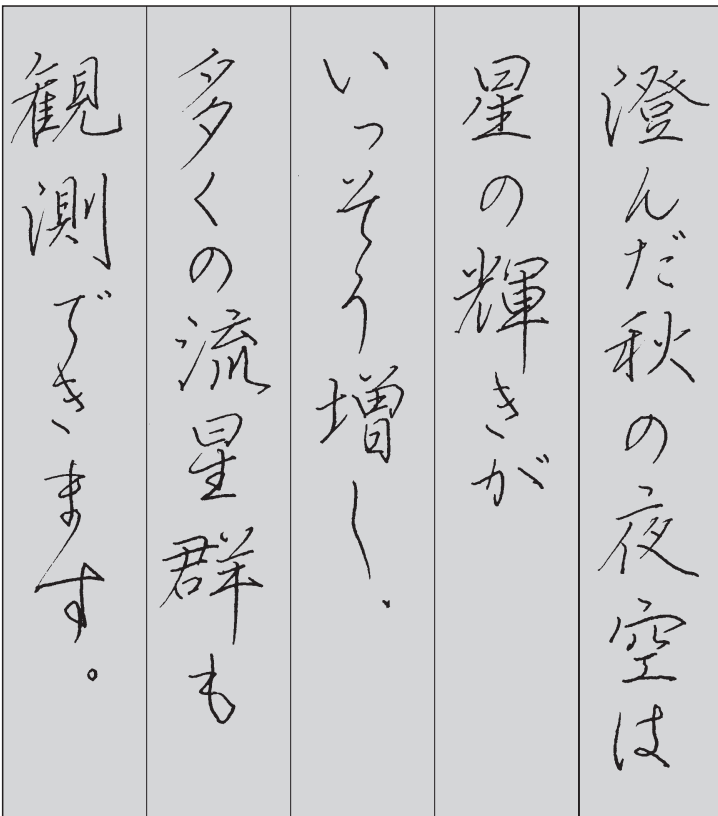 澄んだ秋の夜空は
星の輝きが
いっそう増し、
多くの流星群も
観測できます。